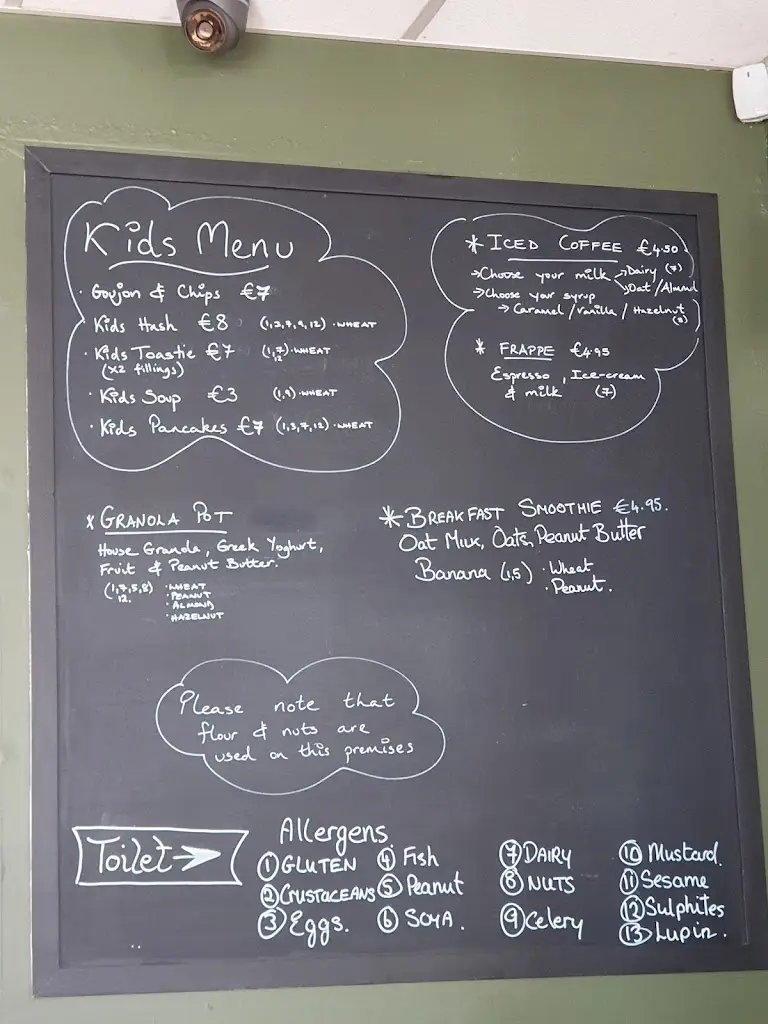 Kids Menu
· Goujon & Chips €7
Kids Hash €8 (1,2,7,9,12) · WHEAT
· Kids Toastie €7 (1,7) · WHEAT
12
(x2 fillings)
· Kids Soup €3 (1,9) · WHEAT
· Kids Pancakes €7 (1,3,7,12) · WHEAT
* ICED COFFEE €4.50
→ Choose your milk → Dairy (7)
→ Oat / Almond
→ Choose your syrup
→ Caramel / Vanilla / Hazelnut
(8)
* FRAPPE €4.95
Espresso, Ice-cream
& milk (7)
* GRANOLA POT
House Granola, Greek Yoghurt,
Fruit & Peanut Butter.
(1,7,5,8) · WHEAT
12. · PEANUT
· ALMOND
· HAZELNUT
* BREAKFAST SMOOTHIE €4.95.
Oat Milk, Oats, Peanut Butter
Banana (1,5) · Wheat
· Peanut.
Please note that
flour & nuts are
used on this premises
Toilet →
Allergens
① GLUTEN ④ Fish ⑦ DAIRY ⑩ Mustard.
② CRUSTACEANS ⑤ Peanut ⑧ NUTS ⑪ Sesame
③ Eggs. ⑥ SOYA. ⑨ Celery ⑫ Sulphites
⑬ Lupin.